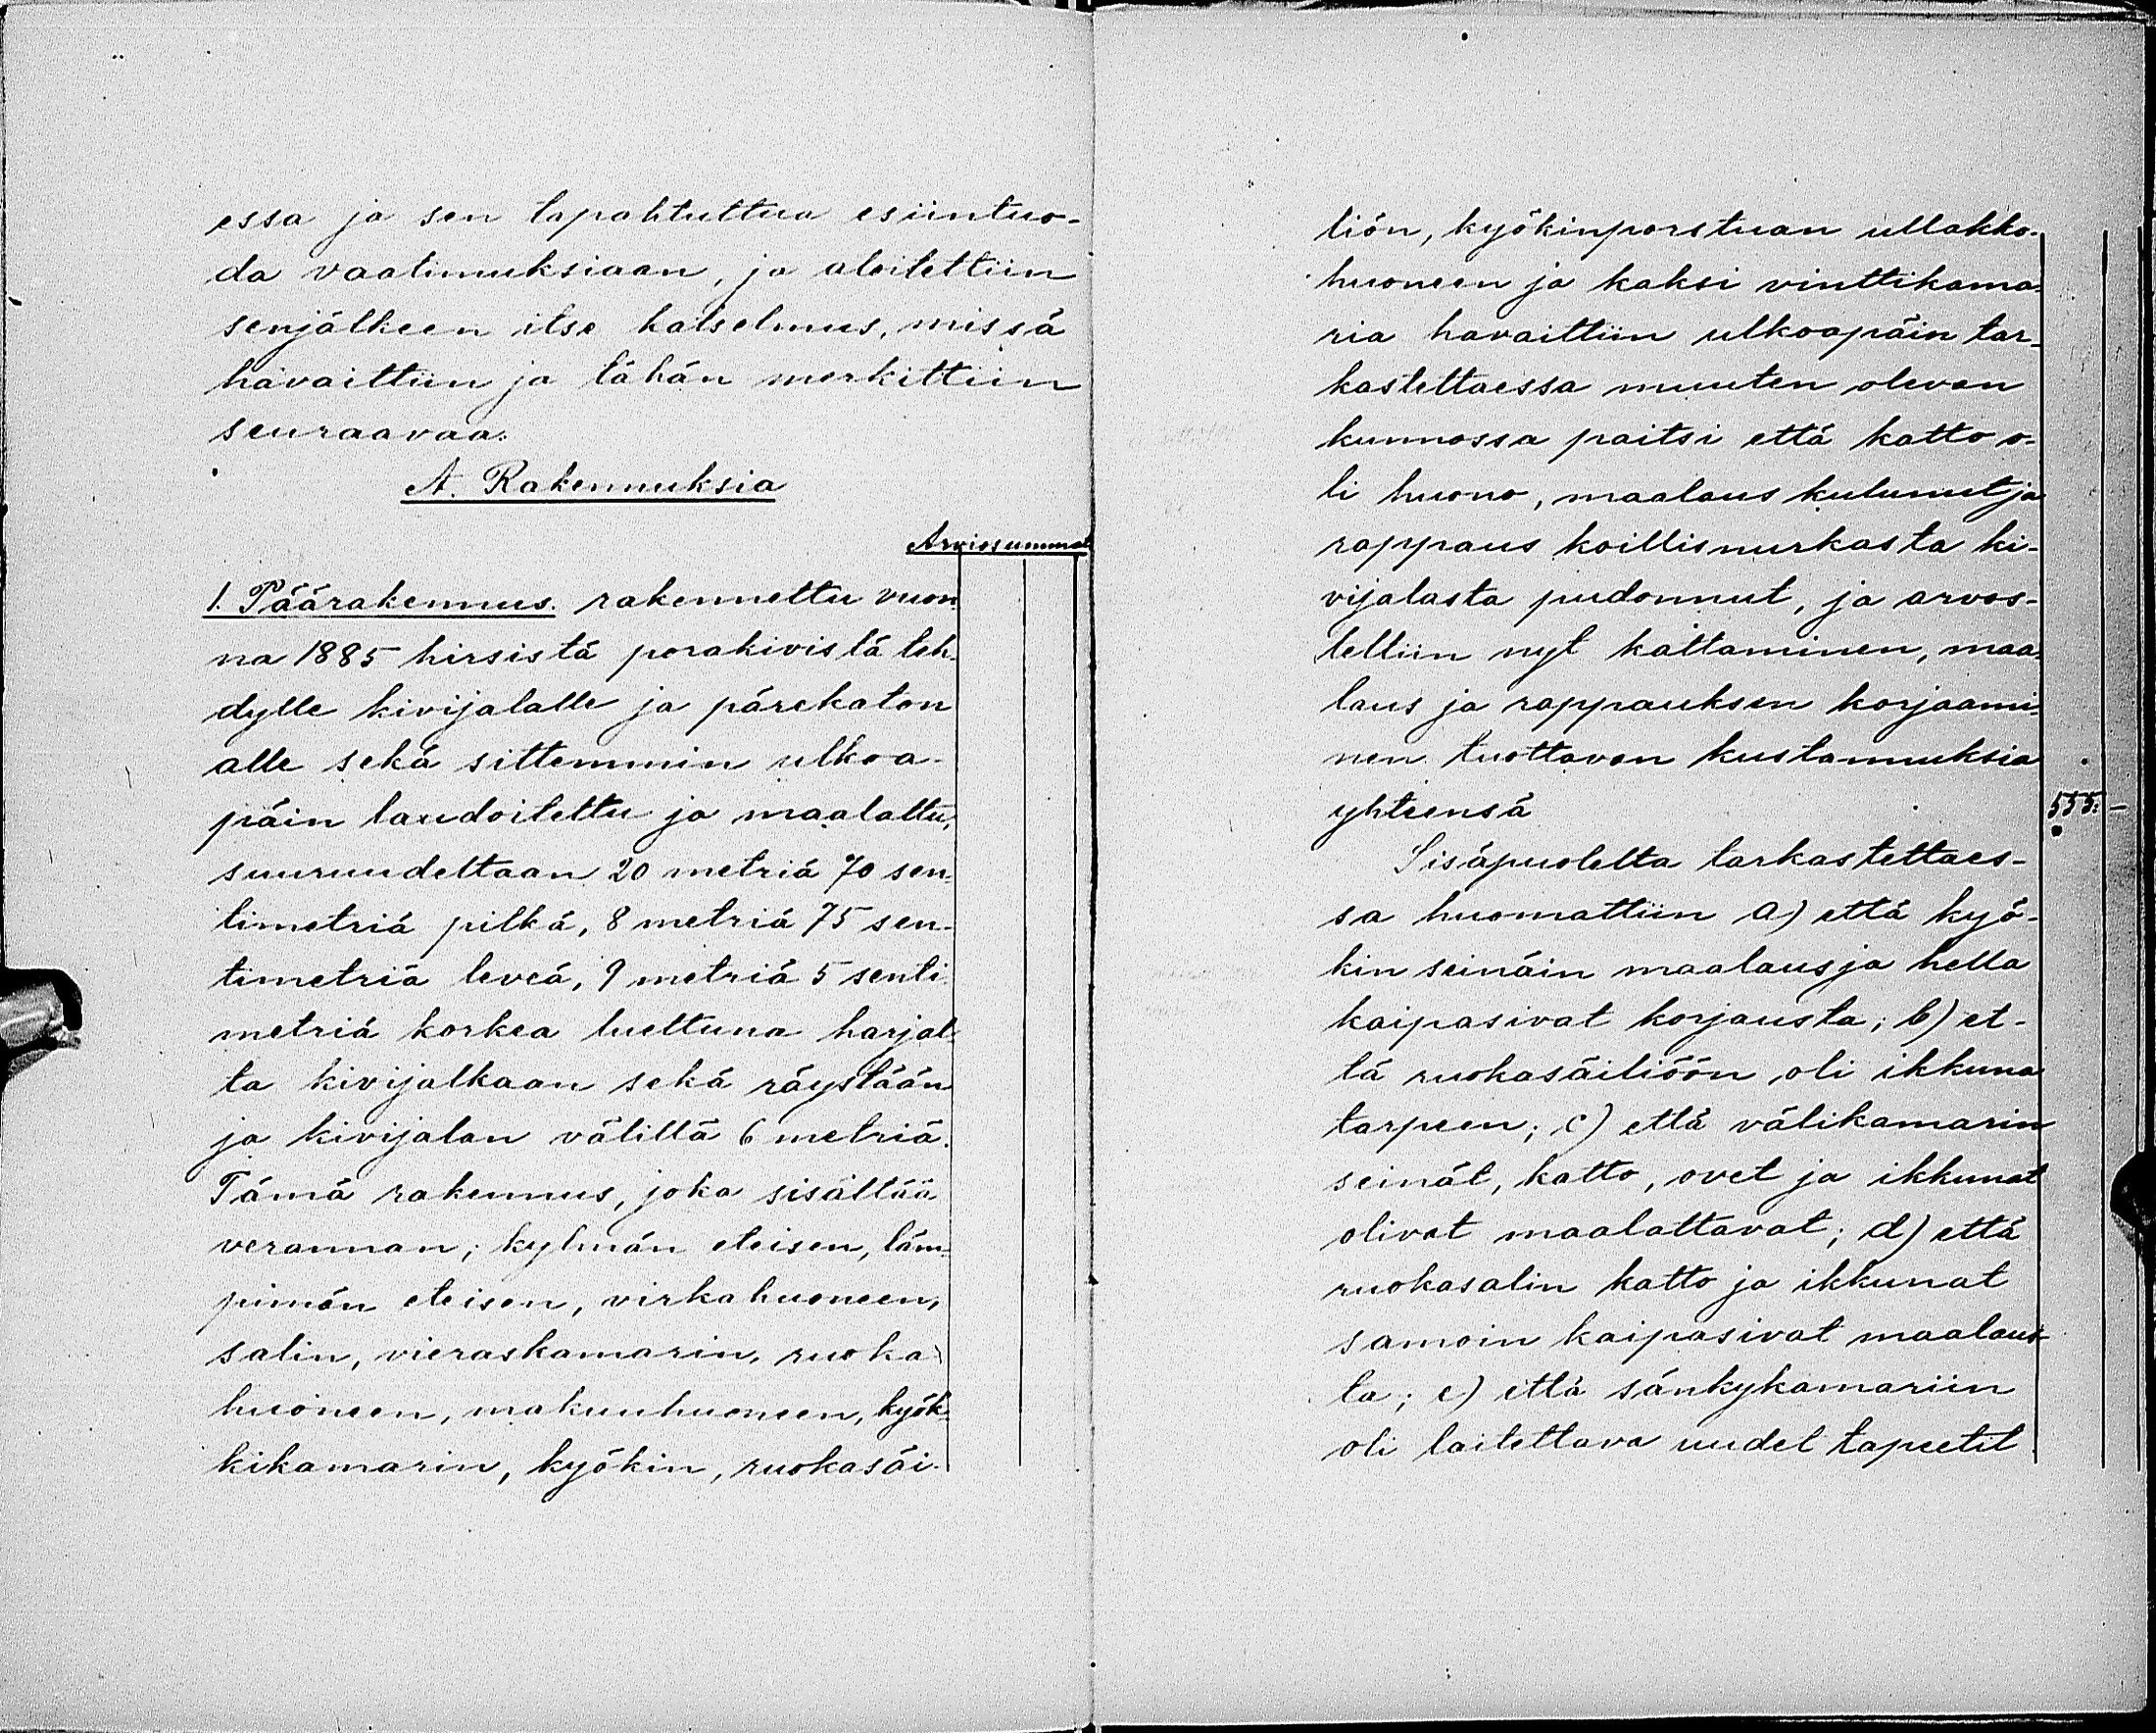 essa ja sen tapahtuttua esiintuo-
da vaatimuksiaan, ja aloitettiin
senjälkeen itse katselmus, missä
havaittiin ja tähän merkittiin
seuraavaa:
A. Rakennuksia
Arviosummat
1. Päärakennus. rakennettu vuon-
na 1885 hirsistä porakivistä teh-
dylle kivijalalle ja pärekaton
alle sekä sittemmin ulkoa-
päin laudoitettu ja maalattu,
suuruudeltaan 20 metriä 70 sen-
timetriä pitkä, 8 metriä 75 sen-
timetriä leveä, 9 metriä 5 senti-
metriä korkea luettuna harjal-
ta kivijalkaan sekä räystään
ja kivijalan välillä 6 metriä.
Tämä rakennus, joka sisältää
verannan; kylmän eteisen, läm-
pimän eteisen, virkahuoneen,
salin, vieraskamarin, ruoka-
huoneen, makuuhuoneen, kyök-
kikamarin, kyökin, ruokasäi-
liön, kyökinporstuan ullakko-
huoneen ja kaksi vinttikama-
ria havaittiin ulkoapäin tar-
kastettaessa muuten olevan
kunnossa paitsi että katto o-
li huono, maalaus kulunut ja
rappaus koillisnurkasta ki-
vijalasta pudonnut, ja arvos-
teltiin nyt kattaminen, maa-
laus ja rappauksen korjaami-
nen tuottavan kustannuksia
yhteensä 555: -
Sisäpuolelta tarkastettaes-
sa huomattiin a) että kyö-
kin seinäin maalaus ja hella
kaipasivat korjausta; b) et-
tä ruokasäiliöön oli ikkuna
tarpeen; c) että välikamarin
seinät, katto, ovet ja ikkunat
olivat maalattavat; d) että
ruokasalin katto ja ikkunat
samoin kaipasivat maalaus-
ta; e) että sänkykamariin
oli laitettava uudet tapeetit